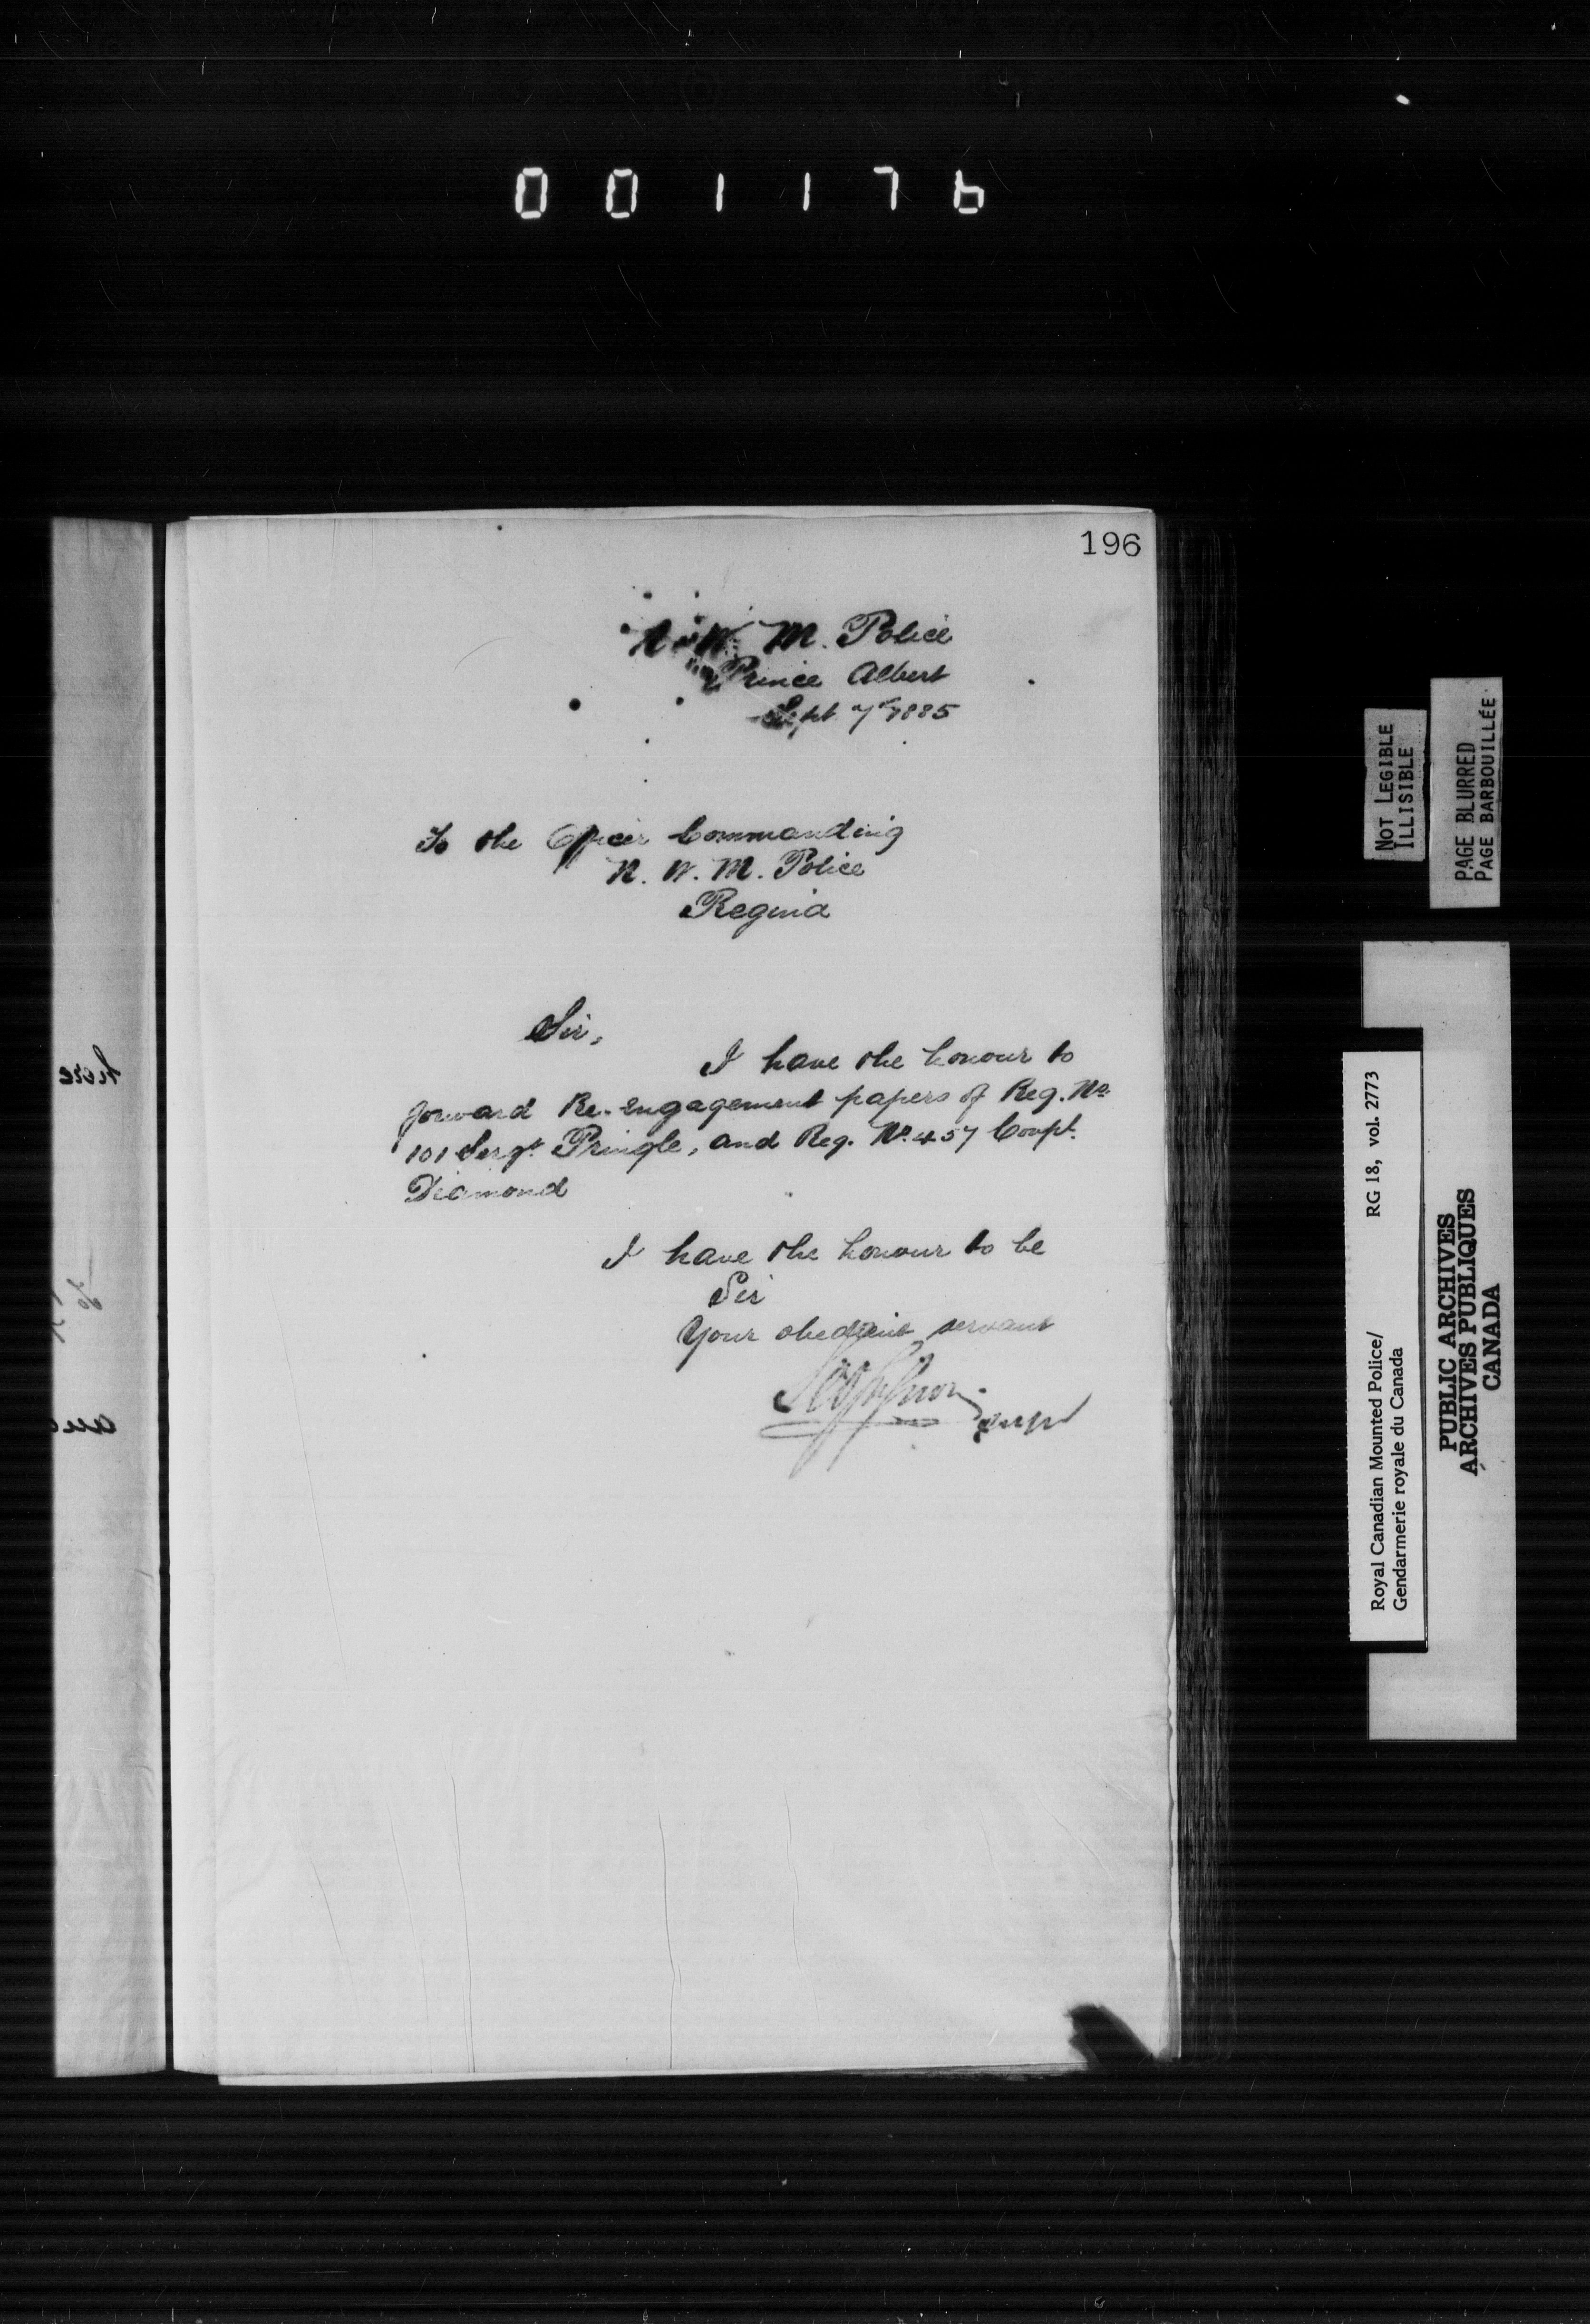 001176
196
N. W. M. Police
Prince Albert
Sept 7th 1885
To the Officer Commanding
N. W. M. Police
Regina
Sir,
I have the honour to
forward Re-engagement papers of Reg. No.
101 Sergt. Pringle, and Reg. No. 457 Corpl.
Diamond
I have the honour to be
Sir
Your obedient servant
Supt
NOT LEGIBLE
ILLISIBLE
PAGE BLURRED
PAGE BARBOUILLÉE
Royal Canadian Mounted Police/ RG 18, vol. 2773
Gendarmerie royale du Canada
PUBLIC ARCHIVES
ARCHIVES PUBLIQUES
CANADA